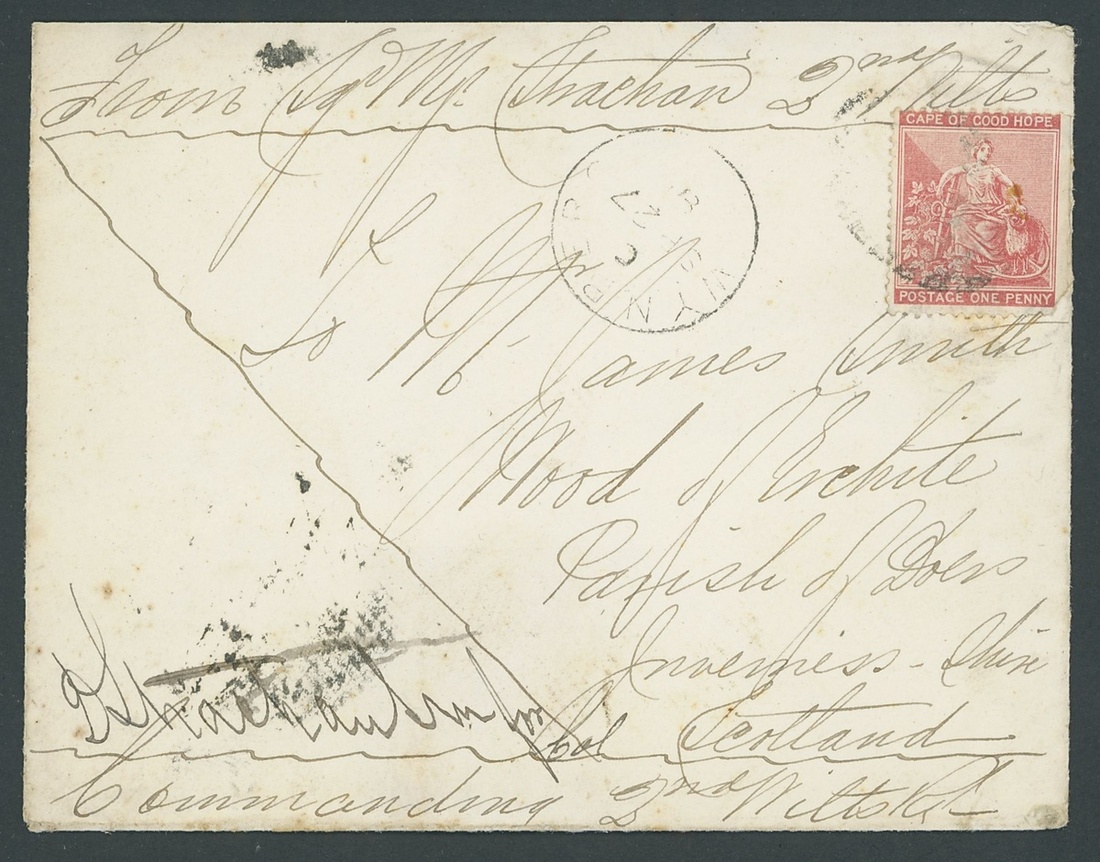 From Sgt Mjr Strachan 2nd Wilts
CAPE OF GOOD HOPE
POSTAGE ONE PENNY
WYNBERG
27
To Mr James Smith
Wood of Erchite
Parish of Dores
Inverness-Shire
Scotland
Col
Commanding 2nd Wilts Rt